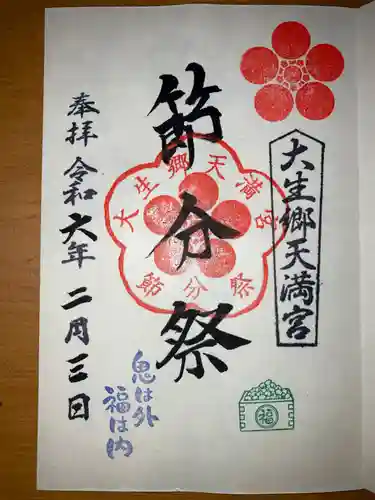 大生郷天満宮
節分祭
大生郷天満宮
節分祭
奉拝 令和六年 二月三日
鬼は外
福は内
福